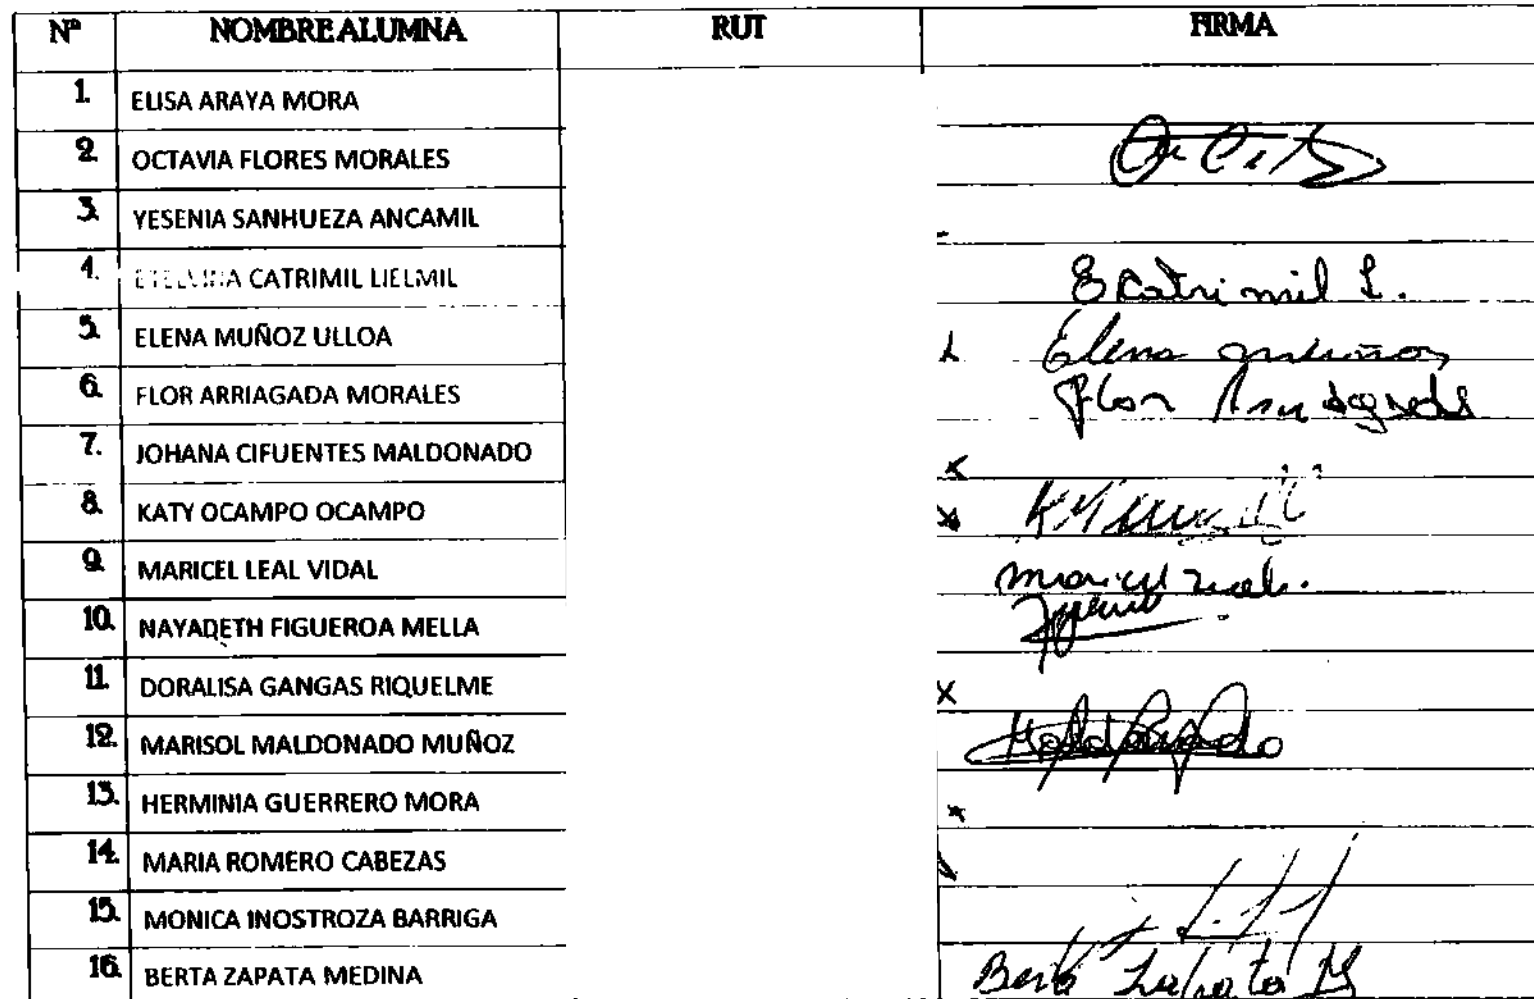 Nº NOMBRE ALUMNA RUT FIRMA
1. ELISA ARAYA MORA
2. OCTAVIA FLORES MORALES
3. YESENIA SANHUEZA ANCAMIL
4. ETELVINA CATRIMIL LIELMIL E Catrimil L.
5. ELENA MUÑOZ ULLOA Elena muñoz
6. FLOR ARRIAGADA MORALES Flor Arriagada
7. JOHANA CIFUENTES MALDONADO x
8. KATY OCAMPO OCAMPO x
9. MARICEL LEAL VIDAL maricel Leal.
10. NAYADETH FIGUEROA MELLA
11. DORALISA GANGAS RIQUELME x
12. MARISOL MALDONADO MUÑOZ
13. HERMINIA GUERRERO MORA x
14. MARIA ROMERO CABEZAS
15. MONICA INOSTROZA BARRIGA
16. BERTA ZAPATA MEDINA Berta Zapata M